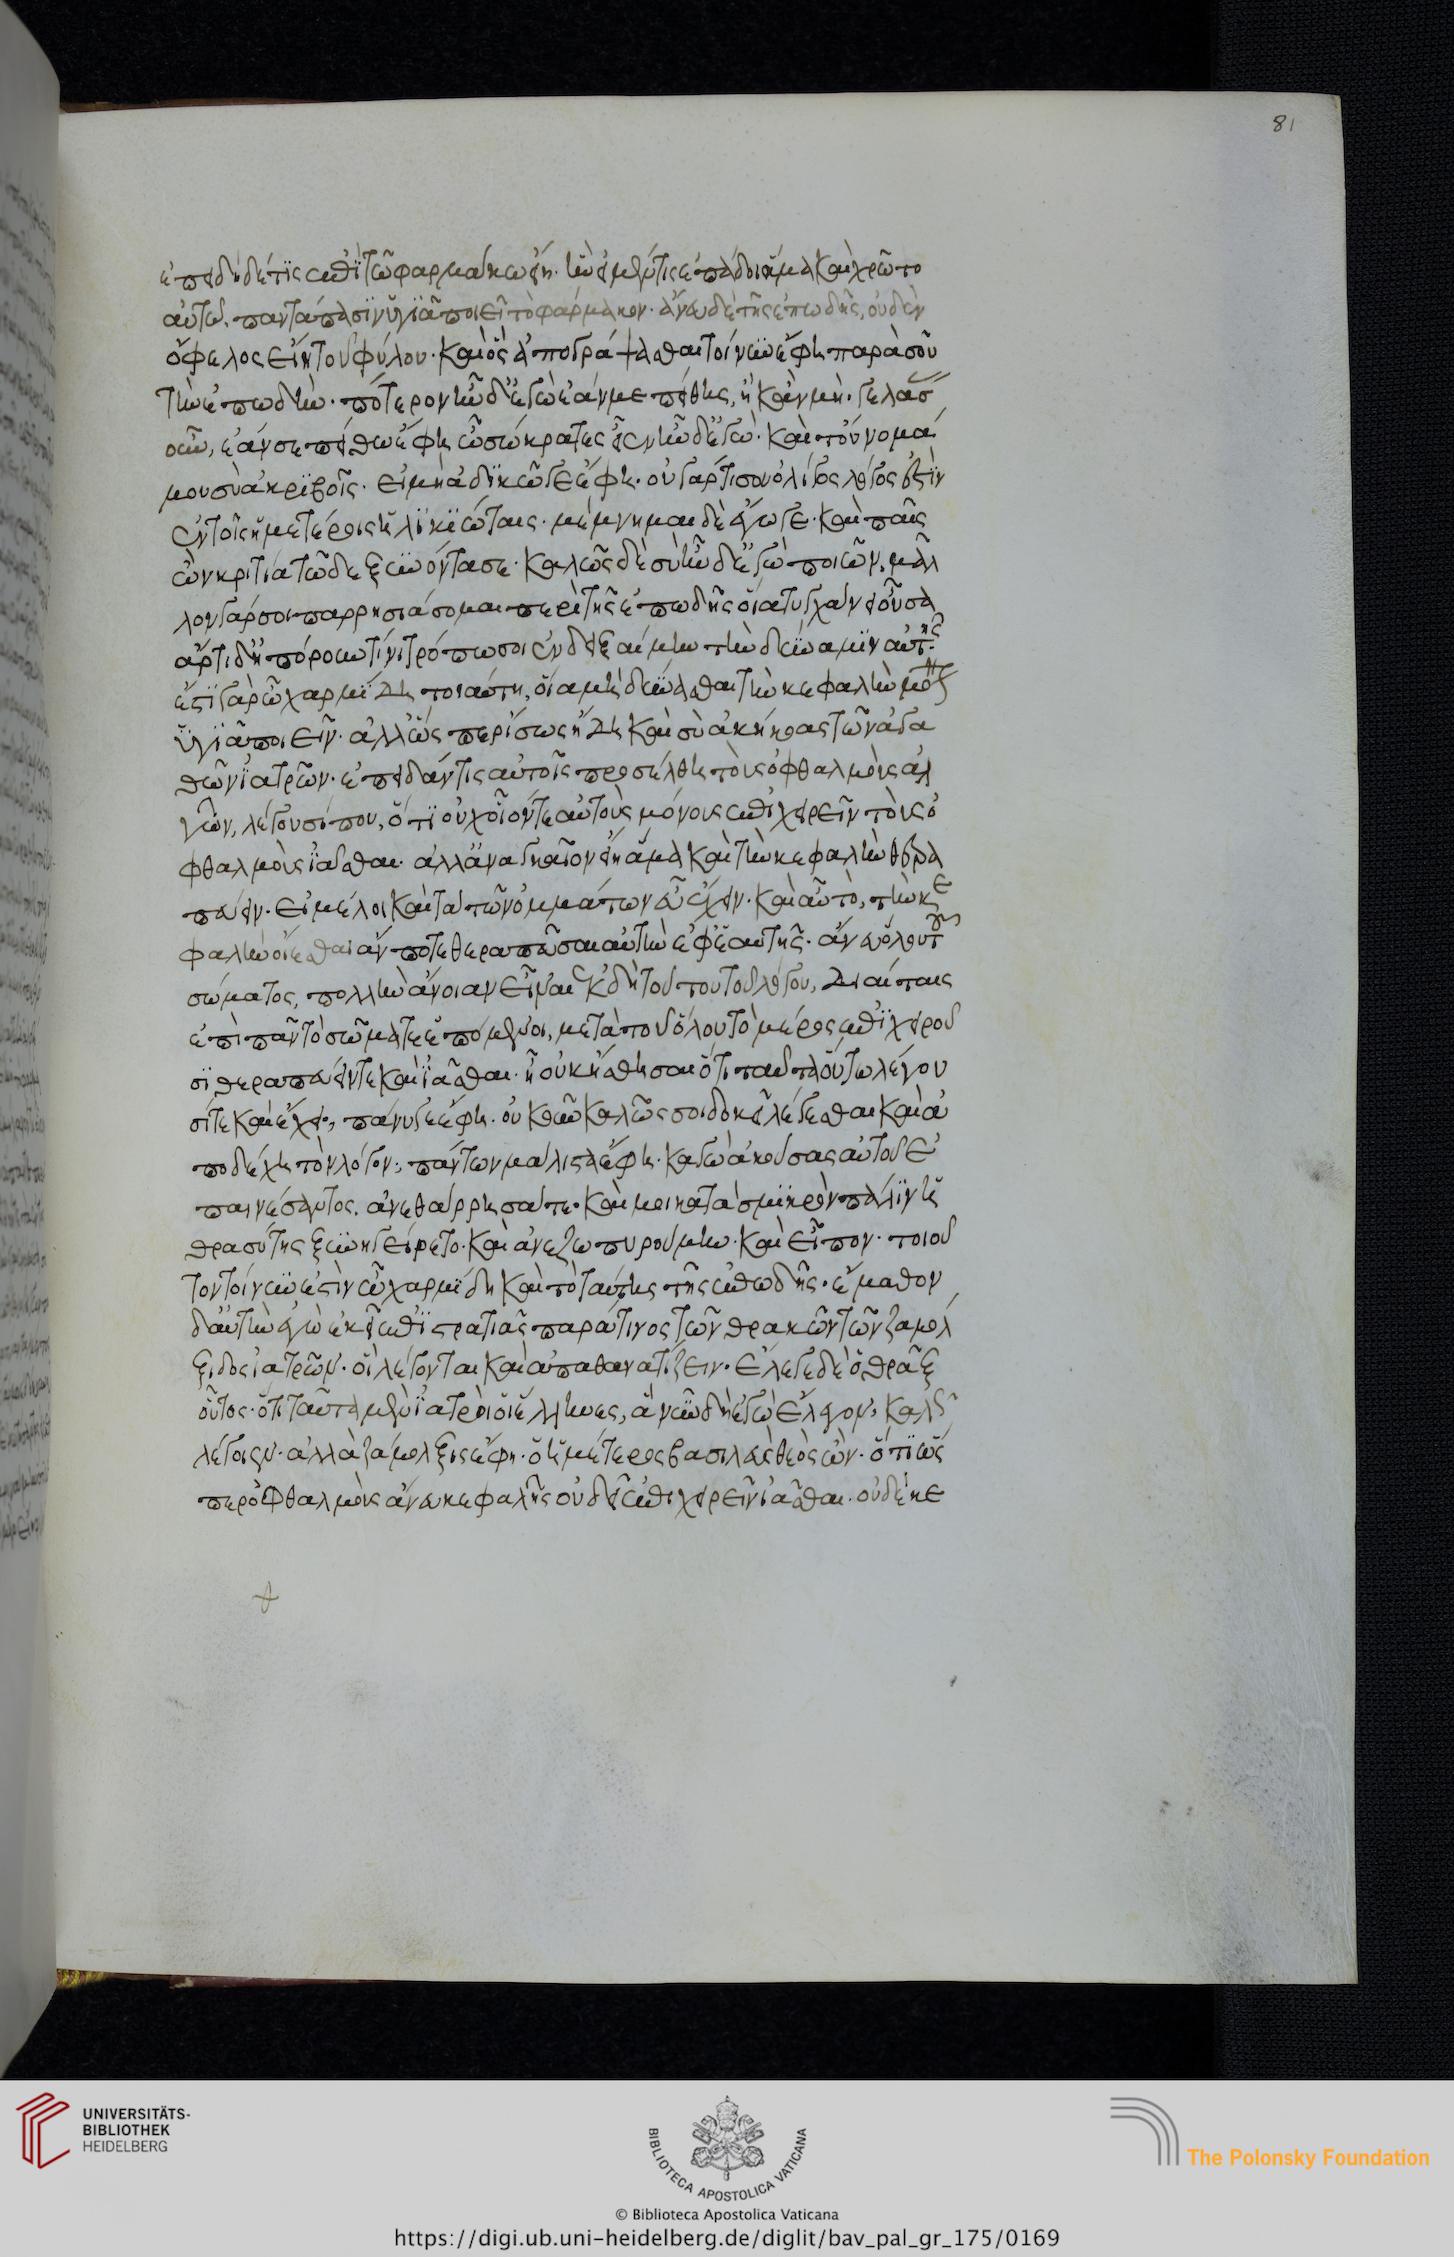 81
ἐπειδὴ δέ τις ἐπὶ τῶ φαρμάκω εἴη. ἣν εἰ μέν τις ἐπάδοι ἅμα καὶ χρῶτο
αὐτῶ, παντάπασιν ὑγιᾶ ποιεῖ τὸ φάρμακον. ἄνευ δὲ τῆς ἐπωδῆς, οὐδὲν
ὄφελος εἴη τοῦ φύλου. καὶ ὃς ἀπογράψασθαι τοίνυν ἔφη παρὰ σοῦ
τὴν ἐπωδήν. πότερον ἦν δ' ἐγὼ ἐάν με πείθης, ἢ κἂν μή. γελάσ
οὖν, ἐάν σε πείθω ἔφη ὦ σώκρατες εἶεν ἦν δ' ἐγώ. καὶ τοὔνομά
μου σὺ ἀκριβοῖς. εἰ μὴ ἀδικῶ γε ἔφη. οὐ γάρ τι σου ὀλίγος λόγος ἐστὶν
ἐν τοῖς ἡμετέροις ἡλικιώταις. μέμνημαι δὲ ἔγωγε. καὶ παῖς
ὢν κριτία τῶδε ξυνόντα σε. καλῶς δὲ σὺ ἦν δ' ἐγὼ ποιῶν. μᾶλ
λον γάρ σοι παρρησιάσομαι περὶ τῆς ἐπωδῆς οἵα τυγχάνει οὖσα
ἄρτι δ' ἠπόρουν τίνι τρόπω σοι ἐνδειξαίμην τὴν δύναμιν αὐτῆς
ἔστι γὰρ ὦ χαρμίδη τοιαύτη, οἵα μὴ δύνασθαι τὴν κεφαλὴν μόνον
ὑγιᾶ ποιεῖν. ἀλλ' ὥσπερ ἴσως ἤδη καὶ σὺ ἀκήκοας τῶν ἀγα
θῶν ἰατρῶν. ἐπειδάν τις αὐτοῖς προσέλθη τοὺς ὀφθαλμοὺς ἀλ
γῶν, λέγουσί που, ὅτι οὐχ οἷόν τε αὐτοὺς μόνους ἐπιχειρεῖν τοὺς ὀ
φθαλμοὺς ἰᾶσθαι. ἀλλ' ἀναγκαῖον εἴη ἅμα καὶ τὴν κεφαλὴν θερα
πεύειν. εἰ μέλοι καὶ τὰ τῶν ὀμμάτων εὖ ἔχειν. καὶ αὖ τὸ, τὴν κε
φαλὴν οἴεσθαι ἄν ποτε θεραπεῦσαι αὐτὴν ἐφ' ἑαυτῆς. ἄνευ ὅλου τοῦ
σώματος, πολλὴν ἄνοιαν εἶναι ἐκ δὴ τούτου τοῦ λόγου, διαίταις
ἐπὶ πᾶν τὸ σῶμα τρεπόμενοι, μετὰ τοῦ ὅλου τὸ μέρος ἐπιχειροῦ
σι θεραπεύειν τε καὶ ἰᾶσθαι. ἢ οὐκ ἤσθησαι ὅτι ταῦτα οὕτω λέγου
σί τε καὶ ἔχει; πάνυ γε ἔφη. οὐκοῦν καλῶς σοι δοκεῖ λέγεσθαι καὶ ἀ
ποδέχη τὸν λόγον; πάντων μάλιστα ἔφη. κἀγὼ ἀκούσας αὐτοῦ ἐ
παινέσαντος. ἀνεθάρρησά τε. καί μοι κατὰ σμικρὸν πάλιν ἡ
θρασύτης ξυνηγείρετο. καὶ ἀνεζωπυρούμην. καὶ εἶπον. τοιοῦ
τον τοίνυν ἐστὶν ὦ χαρμίδη καὶ τὸ ταύτης τῆς ἐπωδῆς. ἔμαθον
δ' αὐτὴν ἐγὼ ἐκεῖ ἐπὶ στρατιᾶς παρά τινος τῶν θρακῶν τῶν ζαμόλ
ξιδος ἰατρῶν. οἳ λέγονται καὶ ἀπαθανατίζειν. ἔλεγε δὲ ὁ θρᾶξ
οὗτος. ὅτι ταῦτα μὲν ἰατροὶ οἱ ἕλληνες, ἃ νῦν δὴ ἐγὼ ἔλεγον, καλῶς
λέγοιεν. ἀλλὰ ζάμολξις ἔφη. ὁ ἡμέτερος βασιλεὺς θεὸς ὤν. ὅτι ὥσ
περ ὀφθαλμοὺς ἄνευ κεφαλῆς οὐ δεῖ ἐπιχειρεῖν ἰᾶσθαι. οὐδὲ κε
UNIVERSITÄTS-
BIBLIOTHEK
HEIDELBERG
BIBLIOTECA APOSTOLICA VATICANA
The Polonsky Foundation
© Biblioteca Apostolica Vaticana
https://digi.ub.uni-heidelberg.de/diglit/bav_pal_gr_175/0169